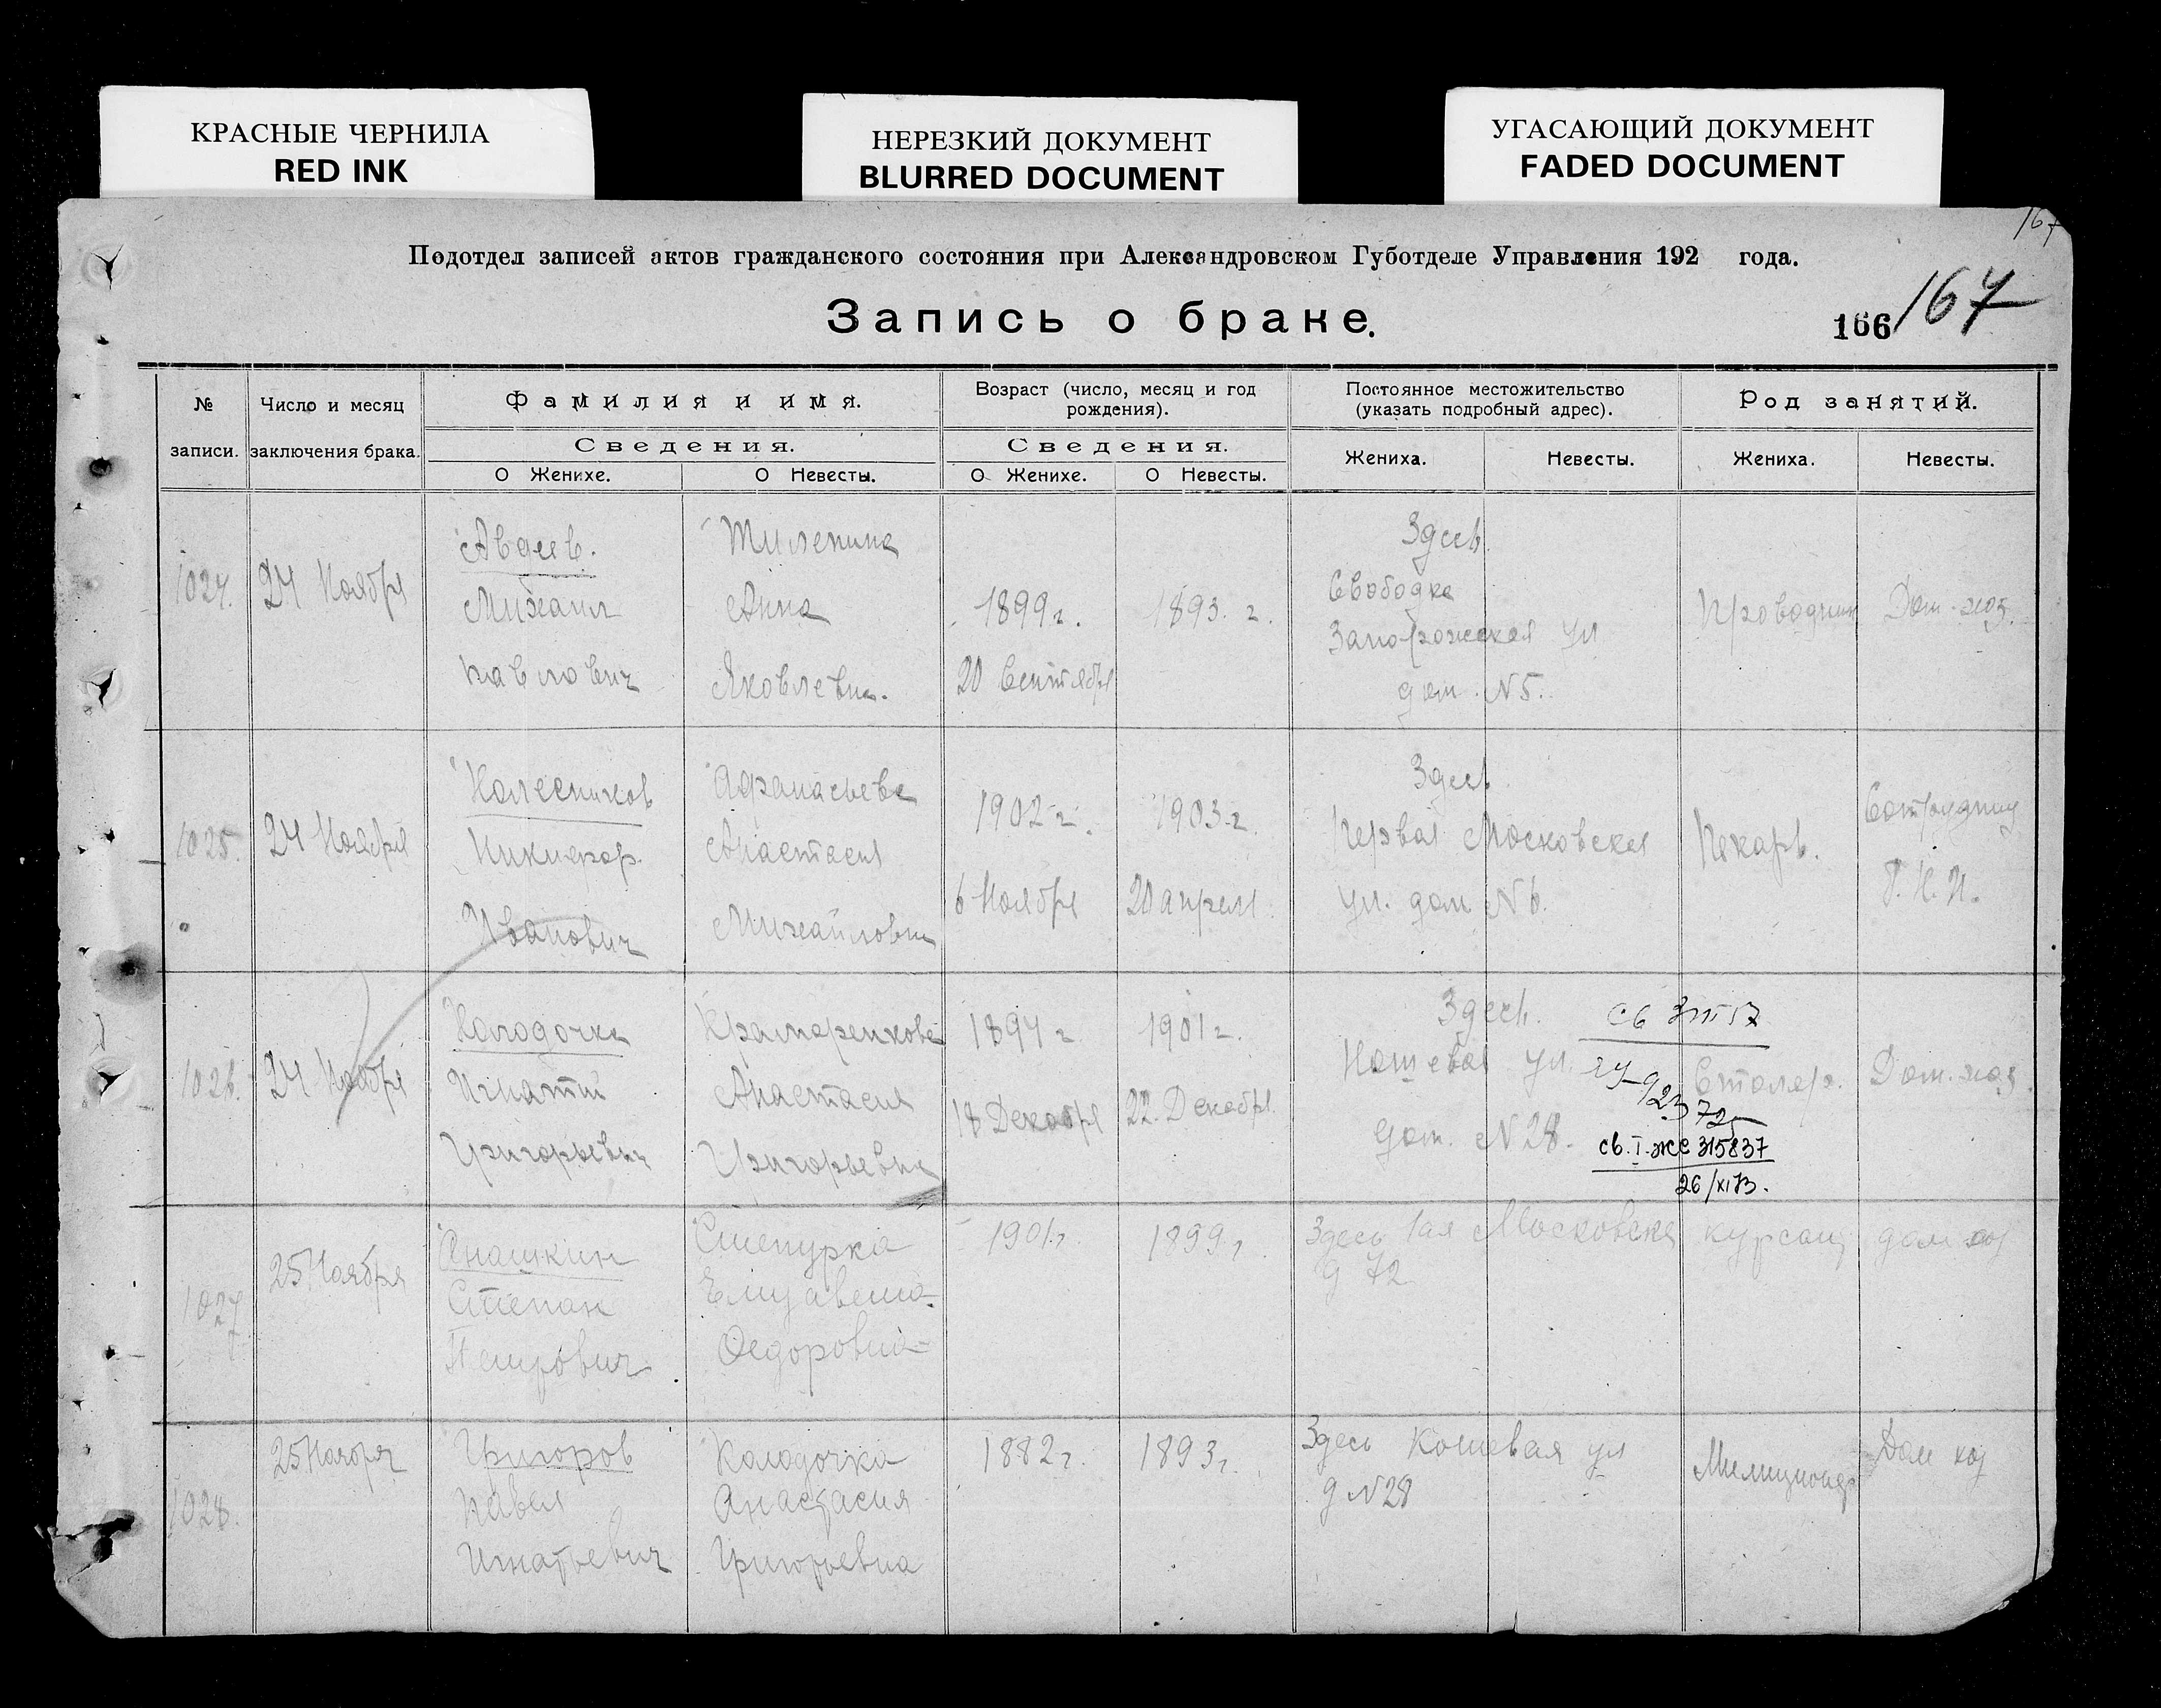 КРАСНЫЕ ЧЕРНИЛА
RED INK
НЕРЕЗКИЙ ДОКУМЕНТ
BLURRED DOCUMENT
УГАСАЮЩИЙ ДОКУМЕНТ
FADED DOCUMENT
167
Подотдел записей актов гражданского состояния при Александровском Губотделе Управления 192 года.
Запись о браке.
166 167
№ записи.
Число и месяц заключения брака.
Фамилия и имя.
Сведения.
О Женихе. О Невесты.
Возраст (число, месяц и год рождения).
Сведения.
О Женихе. О Невесты.
Постоянное местожительство (указать подробный адрес).
Жениха. Невесты.
Род занятий.
Жениха. Невесты.
1024. 24 Ноября
Авдеев.
Михаил
Павлович
Анна
Яковлевна.
1899 г.
20 Сентября
1893. г.
Здесь
Слободка
Запорожская ул
дом. N 5.
Проводник
Дом. хоз.
1025. 24 Ноября
Колесников
Никифор.
Иванович
Афанасьева
Анастасия
Михайловна
1902 г.
6 Ноября
1903 г.
20 апреля
Здесь
Первая Московская
ул. дом N 6.
Пекарь.
Сотрудниц
Р. К. И.
1026. 24 Ноября
Колодочка
Игнатий
Григорьевич
Крамаренкова
Анастасия
Григорьевна
1894 г
18 Декабря
1901 г.
22. Декабря
Здесь.
Кошевая ул.
дом. N 28.
св. I-ЖС 315837
26/XI 73.
Столяр.
Дом. хоз.
1027 25 Ноября
Анашкин
Степан
Петрович
Степурка
Елизавета
Федоровна
1901 г
1899 г.
Здесь 1ая Московска
д 72
курсант
дом хоз
1028. 25 Ноября
Григоров
Павел
Игнатьевич
Колодочка
Анастасия
Григорьевна
1882 г
1893 г.
Здесь Кошевая ул
д N 28
Милиционер
Дом хоз